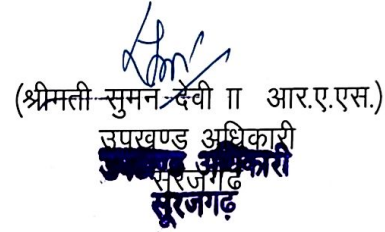 (श्रीमती सुमन देवी II आर.ए.एस.)
उपखण्ड अधिकारी
उपखण्ड अधिकारी
सूरजगढ़
सूरजगढ़